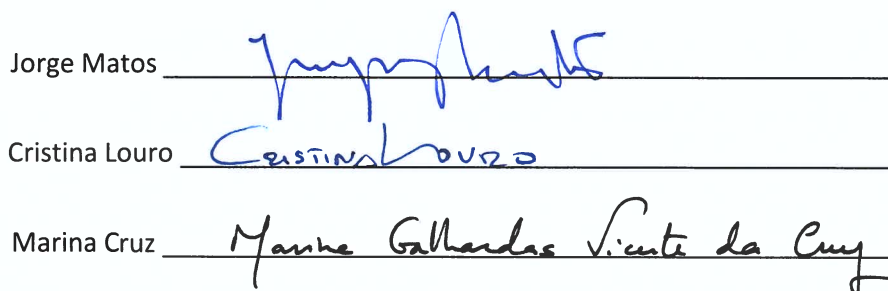 Jorge Matos Jorge Matos
Cristina Louro Cristina Louro
Marina Cruz Marina Galhardas Vicente da Cruz